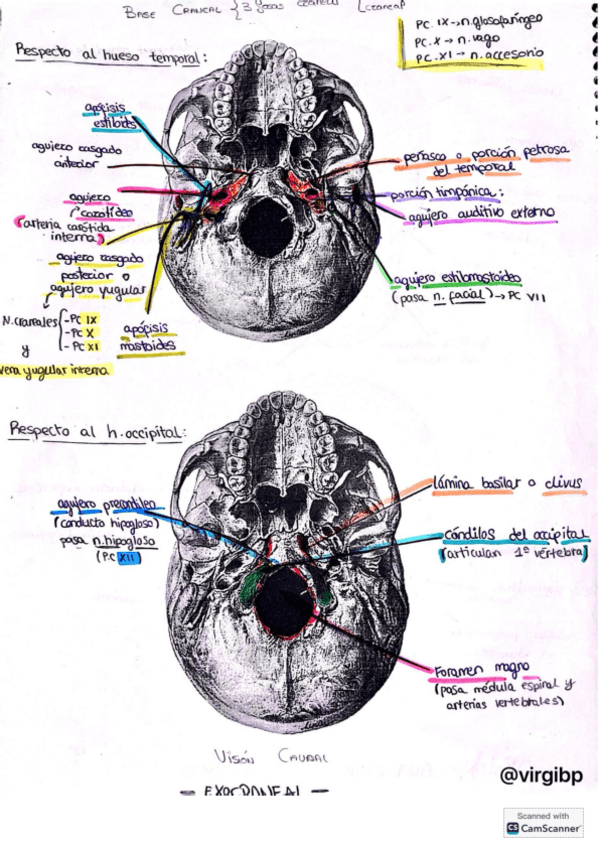 BASE CRANEAL { 3 fosas
PC. IX → n. glosofaríngeo
PC. X → n. vago
PC. XI → n. accesorio
Respecto al hueso temporal:
apófisis
estiloides
agujero rasgado
anterior
agujero
carotídeo
(arteria carótida
interna)
agujero rasgado
posterior o
agujero yugular
N. craneales
- PC IX
- PC X
- PC XI
y
vena yugular interna
apófisis
mastoides
peñasco o porción petrosa
del temporal
porción timpánica:
agujero auditivo externo
agujero estilomastoideo
(pasa n. facial) → PC VII
Respecto al h. occipital:
agujero precondíleo
(conducto hipogloso)
pasa n. hipogloso
(P.C XII)
lámina basilar o clivus
cóndilos del occipital
(articulan 1ª vértebra)
Foramen magno
(pasa médula espiral y
arterias vertebrales)
VISIÓN CAUDAL
- EXOCRANEAL -
@virgibp
Scanned with
CS CamScanner